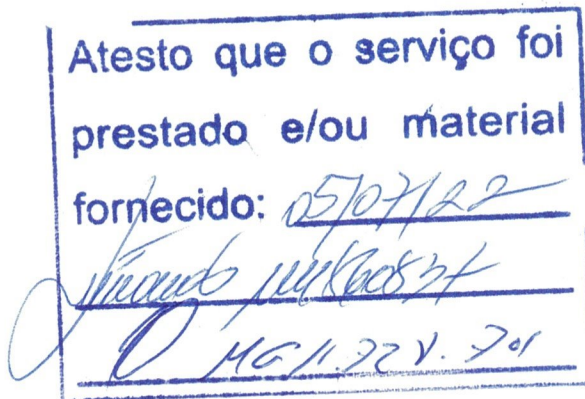 Atesto que o serviço foi
prestado e/ou material
fornecido: 05/07/22
MG 11.